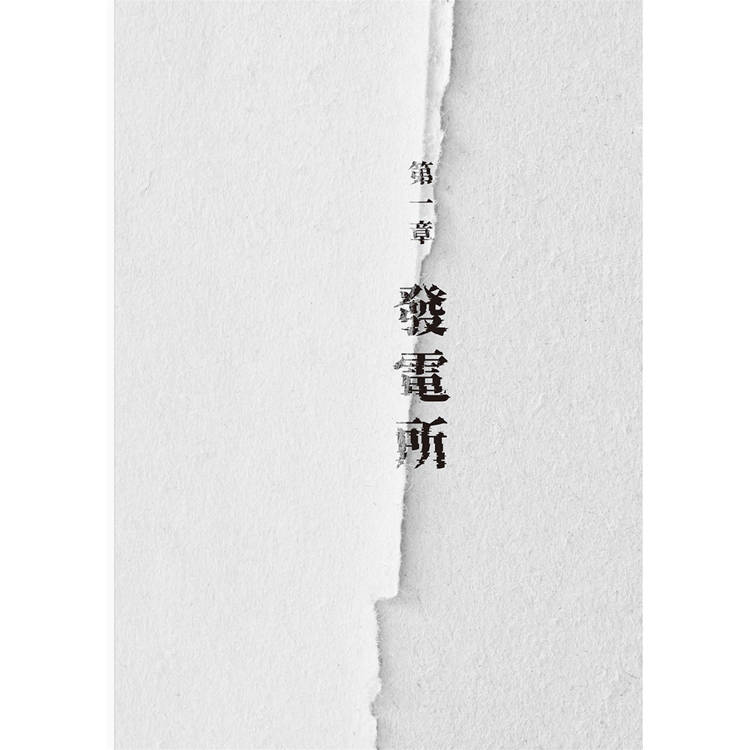 第一章
發電所